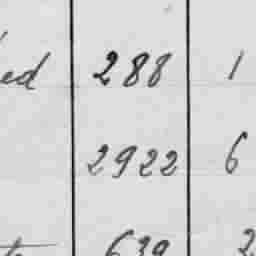 ed 288 1
2922 6
639 2